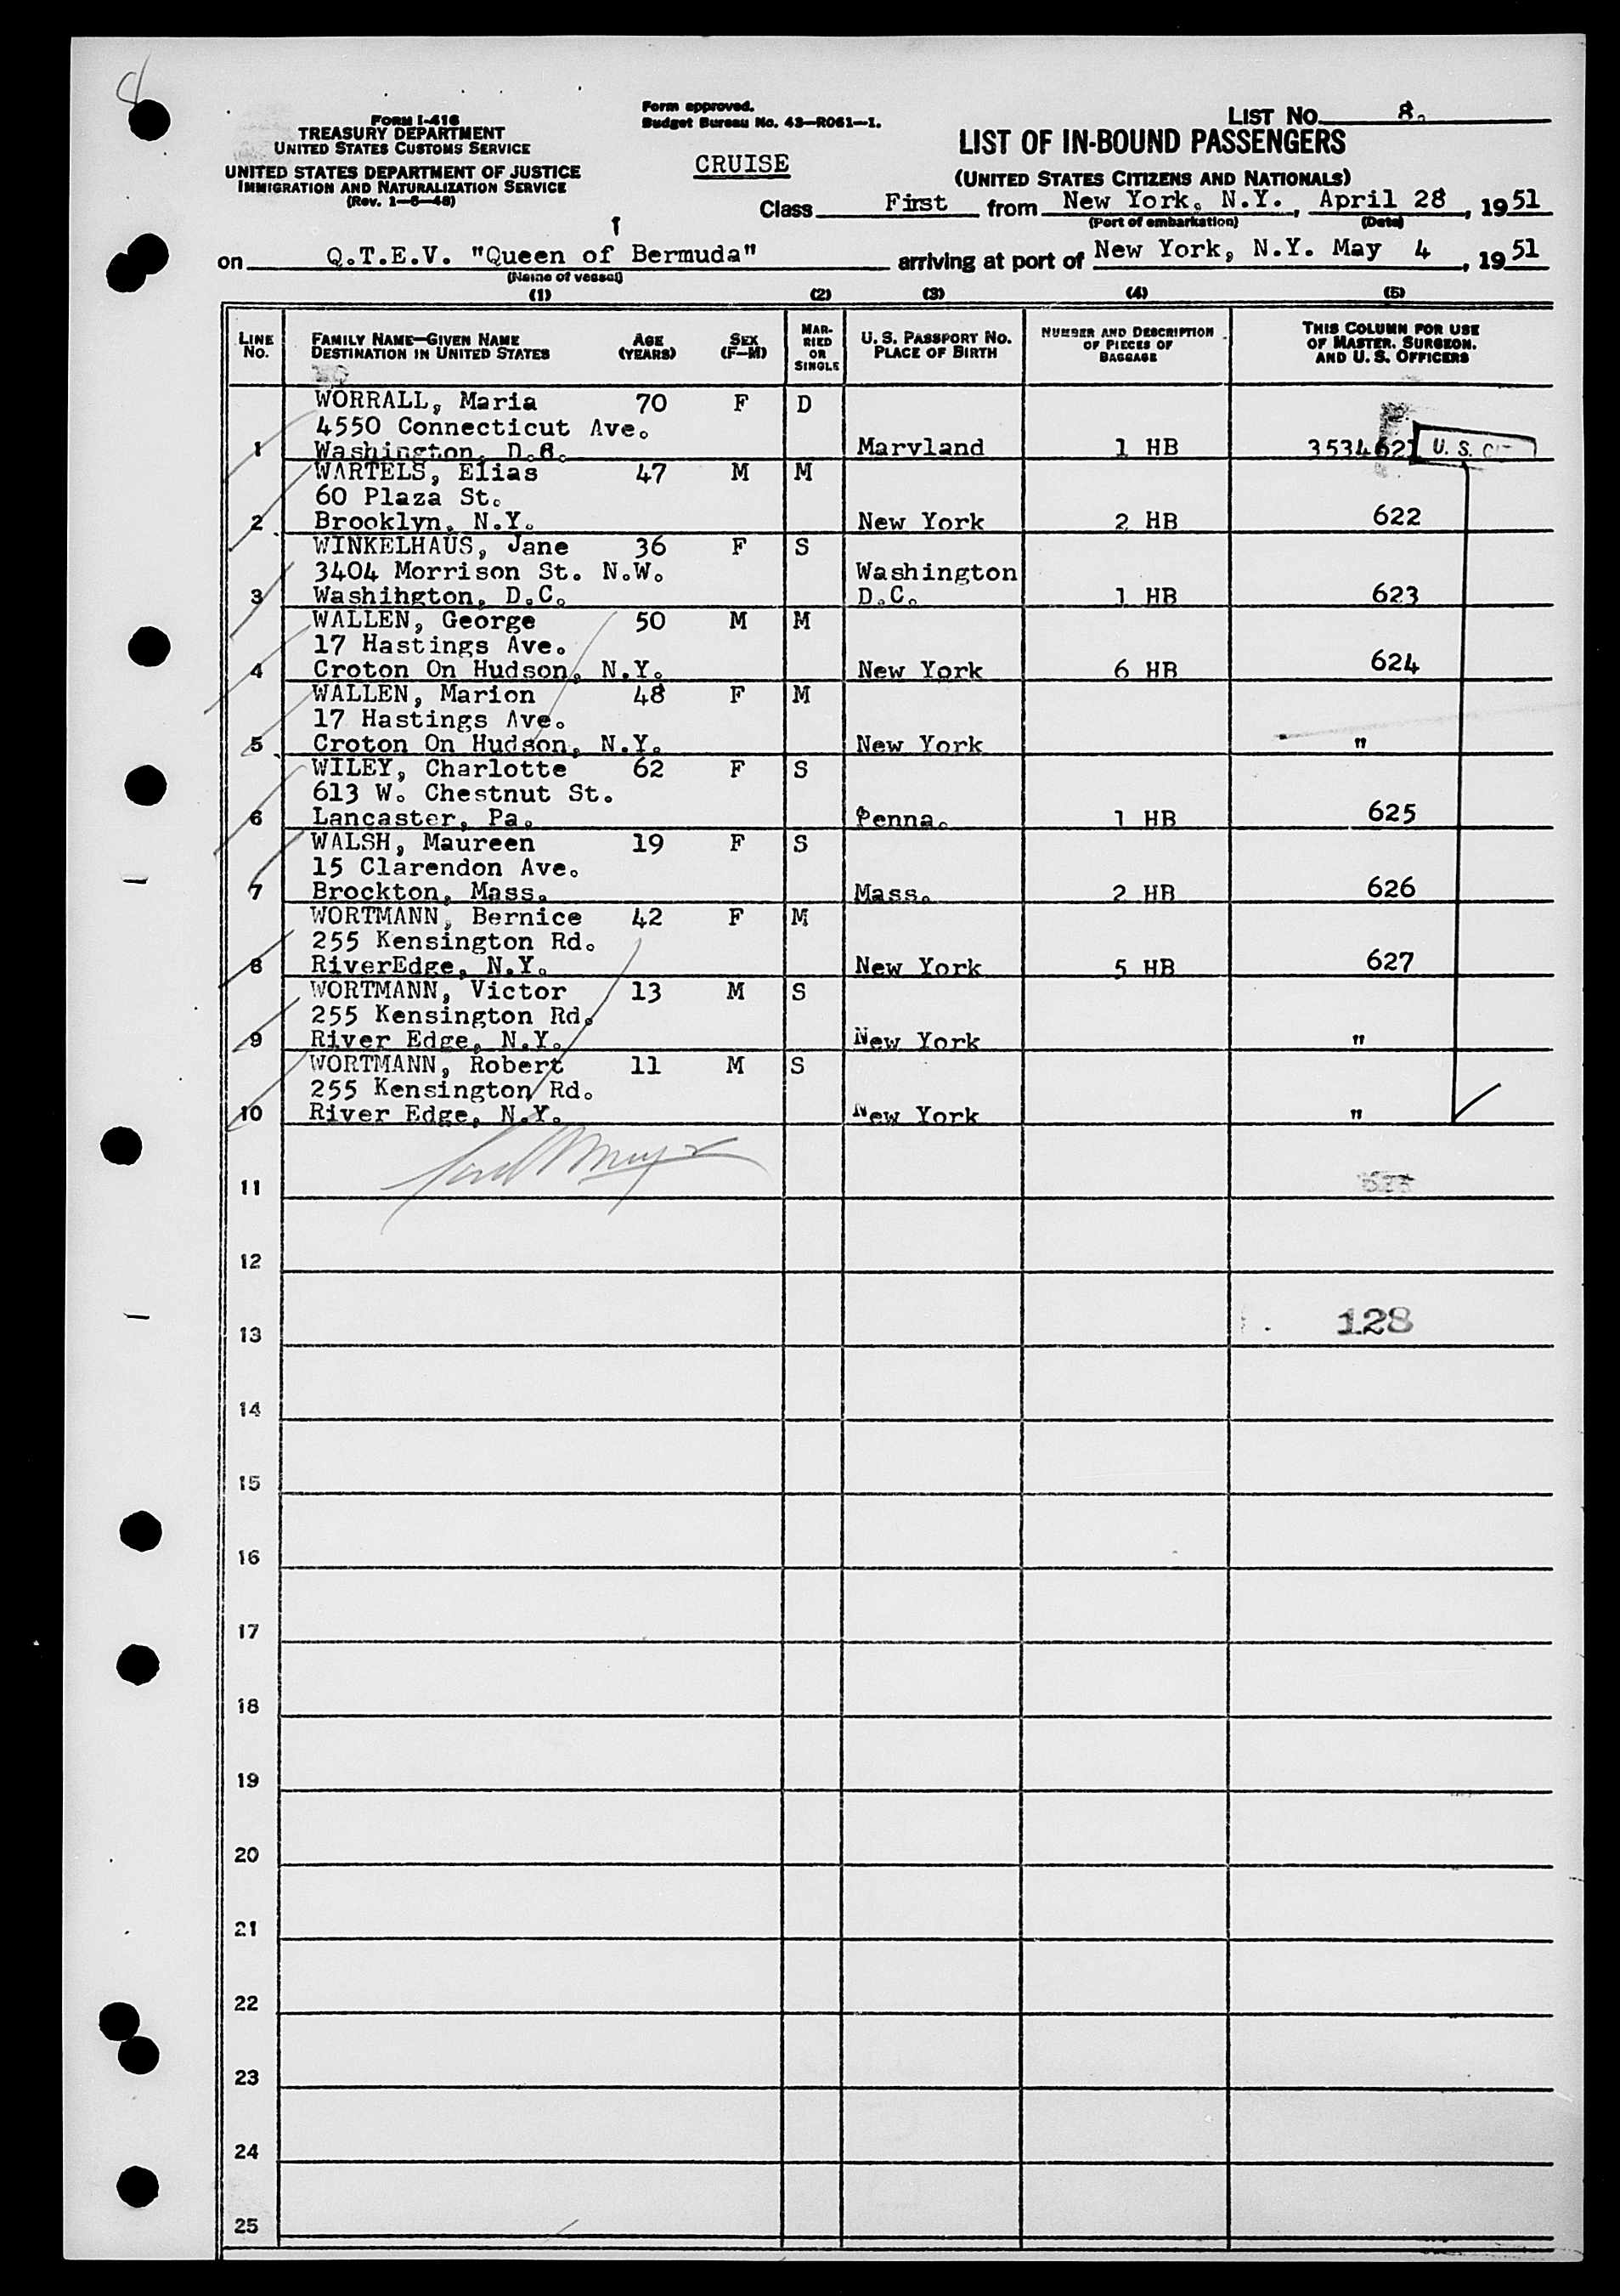 8
FORM I-416
TREASURY DEPARTMENT
UNITED STATES CUSTOMS SERVICE
UNITED STATES DEPARTMENT OF JUSTICE
IMMIGRATION AND NATURALIZATION SERVICE
(Rev. 1-5-48)
Form approved.
Budget Bureau No. 43-R061-1.
CRUISE
LIST NO. 8.
LIST OF IN-BOUND PASSENGERS
(UNITED STATES CITIZENS AND NATIONALS)
Class First from New York, N.Y., April 28, 1951
(Port of embarkation) (Date)
on Q.T.E.V. "Queen of Bermuda" arriving at port of New York, N.Y. May 4, 1951
(Name of vessel)
(1) (2) (3) (4) (5)
LINE NO. FAMILY NAME—GIVEN NAME DESTINATION IN UNITED STATES AGE (YEARS) SEX (F—M) MARRIED OR SINGLE U. S. PASSPORT NO. PLACE OF BIRTH NUMBER AND DESCRIPTION OF PIECES OF BAGGAGE THIS COLUMN FOR USE OF MASTER, SURGEON, AND U. S. OFFICERS
WORRALL, Maria 70 F D
4550 Connecticut Ave.
1 Washington, D.C. Maryland 1 HB 3534621 U. S. CIT
WARTELS, Elias 47 M M
60 Plaza St.
2 Brooklyn, N.Y. New York 2 HB 622
WINKELHAUS, Jane 36 F S
3404 Morrison St. N.W. Washington
3 Washihgton, D.C. D.C. 1 HB 623
WALLEN, George 50 M M
17 Hastings Ave.
4 Croton On Hudson, N.Y. New York 6 HB 624
WALLEN, Marion 48 F M
17 Hastings Ave.
5 Croton On Hudson, N.Y. New York "
WILEY, Charlotte 62 F S
613 W. Chestnut St.
6 Lancaster, Pa. Penna. 1 HB 625
WALSH, Maureen 19 F S
15 Clarendon Ave.
7 Brockton, Mass. Mass. 2 HB 626
WORTMANN, Bernice 42 F M
255 Kensington Rd.
8 RiverEdge, N.Y. New York 5 HB 627
WORTMANN, Victor 13 M S
255 Kensington Rd.
9 River Edge, N.Y. New York "
WORTMANN, Robert 11 M S
255 Kensington Rd.
10 River Edge, N.Y. New York "
11
12
13 128
14
15
16
17
18
19
20
21
22
23
24
25